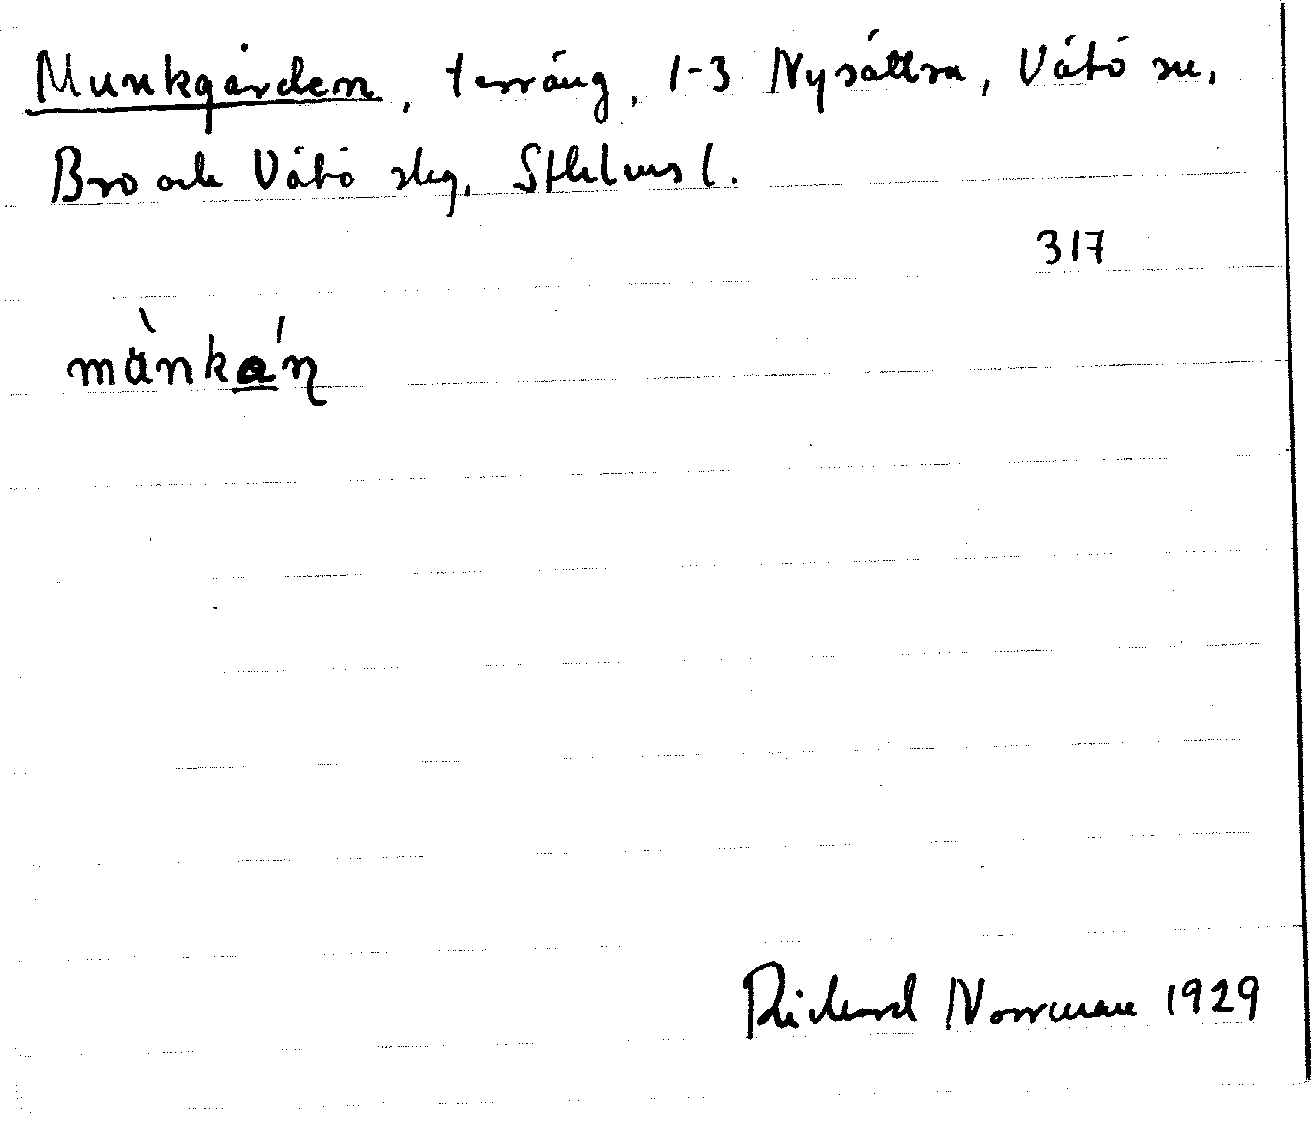 Munkgården, terräng, 1-3 Nysättra, Vätö sn,
Bro och Vätö skg, Sthlms l.
317
mànká'n
Richard Norrman 1929